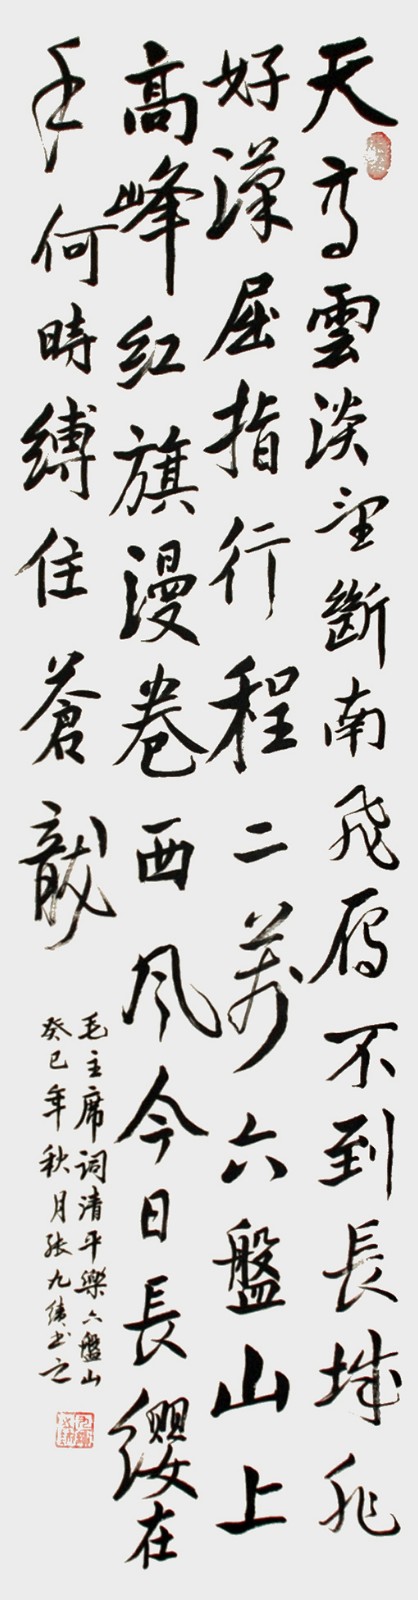 天高雲淡望斷南飛雁不到長城非
好漢屈指行程二萬六盤山上
高峰紅旗漫卷西風今日長纓在
手何時縛住蒼龍
毛主席詞清平樂六盤山
癸巳年秋月張九書之